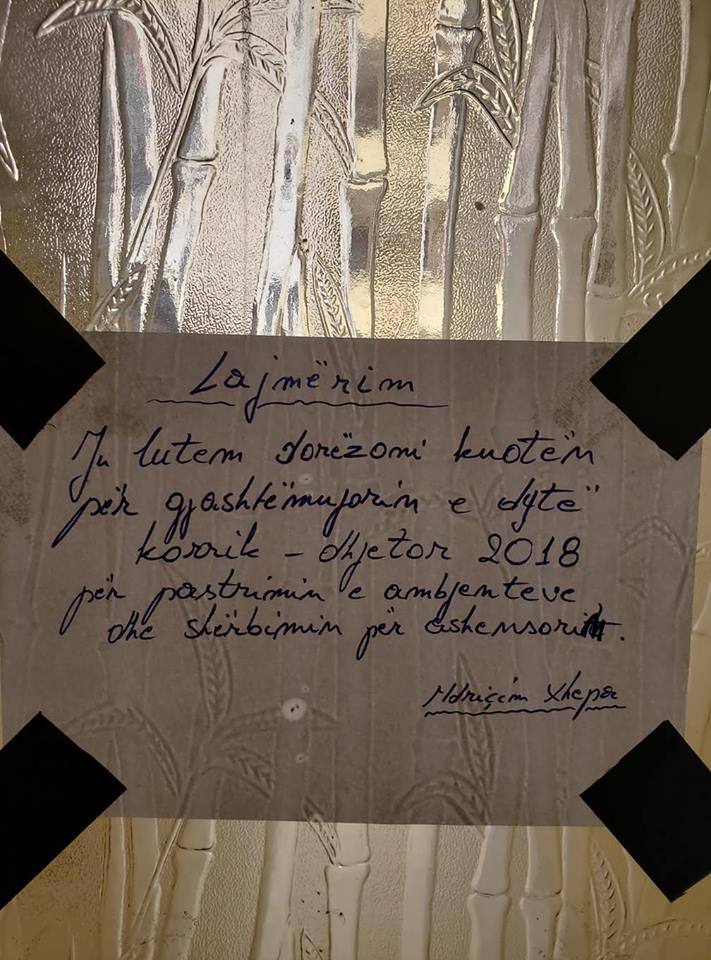 Lajmërim
Ju lutem dorëzoni kuotën
për gjashtëmujorin e dytë
korrik - dhjetor 2018
për pastrimin e ambjenteve
dhe shërbimin për ashensorin.
Ndriçim Xhepa